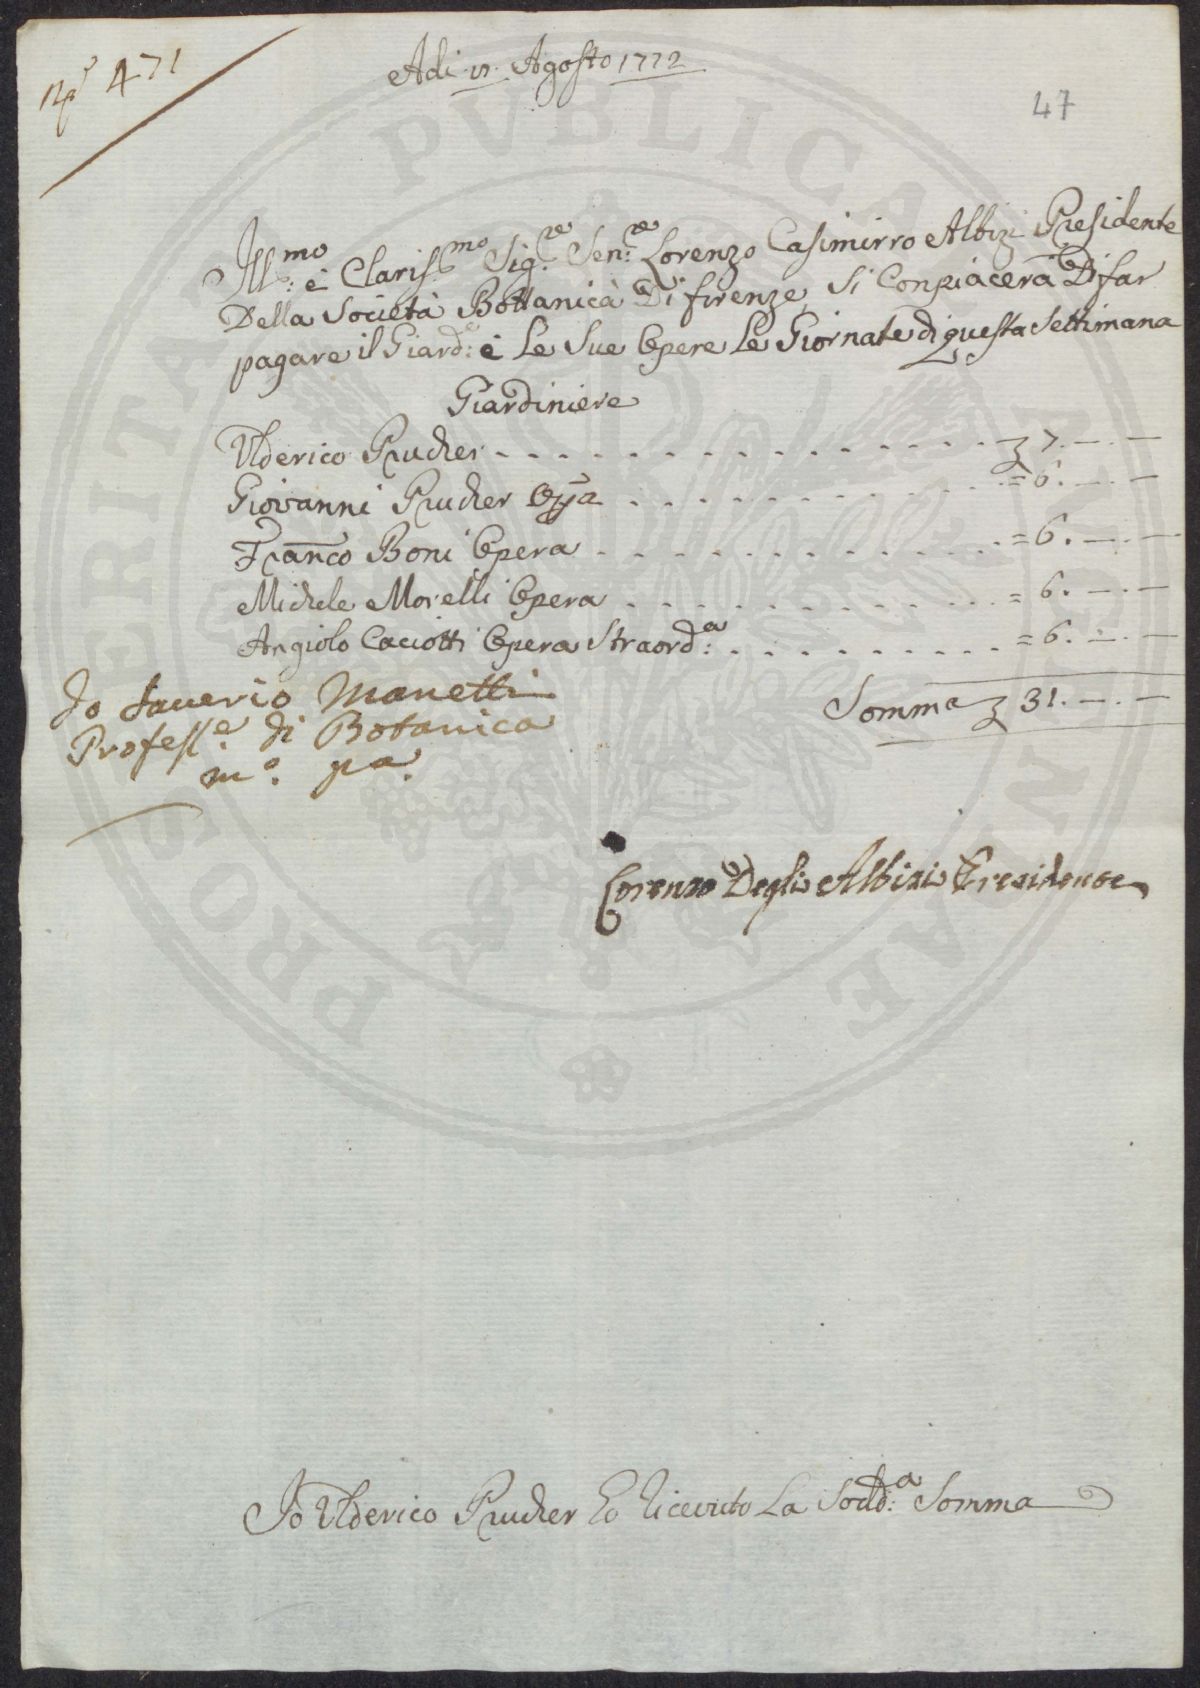 N.º 471
Adi Agosto 1772
47
Ill.mo: è Claris.mo Sig.re Sen.re Lorenzo Casimirro Albizi Presidente
Della Società Bottanicà Di firenze Si Conpiacerà Di far
pagare il Giard.e: è Le Sue Opere Le Giornate di questa Settimana
Giardiniere
Ulderico Prucher - - - - - - - - - - - - 7.—.—
Giovanni Prucher Opa - - - - - - - - - - = 6.—.—
Franco Boni Opera - - - - - - - - - - - = 6.—.—
Michele Morelli Opera - - - - - - - - - - = 6.—.—
Angiolo Caciotti Opera Straord.a: - - - - - - - - = 6.—.—
Somma 31.—.—
Io Saverio Manetti
Profess.e di Botanica
m.o p.a
Lorenzo Degli Albizi Presidente
PROSPERITATI PVBLICAE AVGENDAE
Io Ulderico Prucher Ho Ricevuto La Sodd.a: Somma